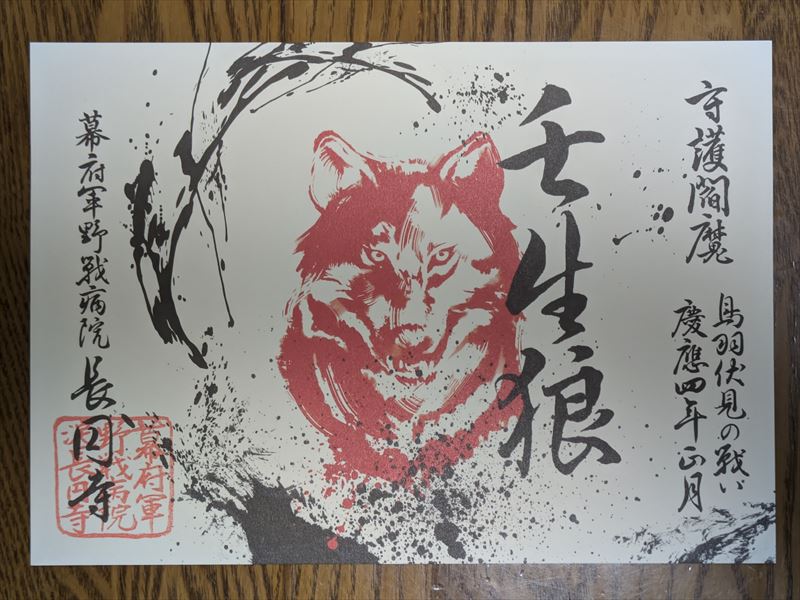 守護閻魔
鳥羽伏見の戦い
慶應四年正月
壬生狼
幕府軍野戦病院
長円寺
幕府軍
野戦病院
長円寺